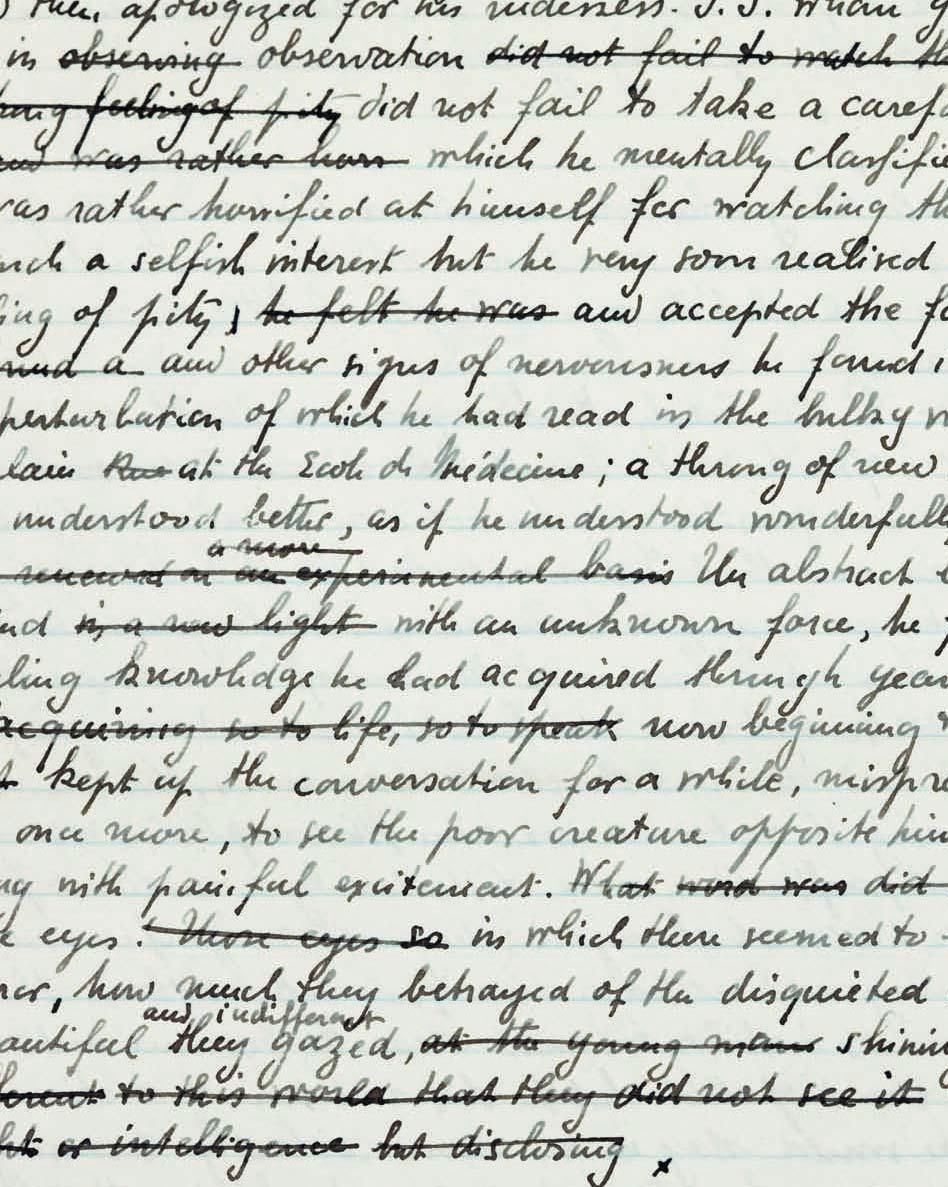 then, apologized for his rudeness. J. J. whom
in observing observation did not fail to watch
feeling of pity did not fail to take a caref
was rather horr which he mentally classifie
was rather horrified at himself for watching th
such a selfish interest but he very soon realised
ling of pity, he felt he was and accepted the fa
a and other signs of nervousness he found
perturbation of which he had read in the bulky
at the Ecole de Médecine; a throng of new
understood better, as if he understood wonderfully
a more
renewed on an experimental basis The abstract
nd in a new light with an unknown force, he
ling knowledge he had acquired through year
acquiring so to life, so to speak now beginning
kept up the conversation for a while, mispr
once more, to see the poor creature opposite him
ng with painful excitement. What word was did
eyes. Those eyes so in which there seemed to
how much they betrayed of the disquieted
and indifferent
autiful they gazed, at the young man shinin
ferent to this world that they did not see it
ht or intelligence but disclosing x